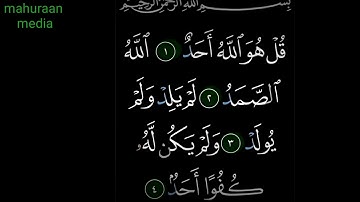 mahuraan
media
بِسْمِ ٱللَّهِ ٱلرَّحْمَٰنِ ٱلرَّحِيمِ
قُلْ هُوَ ٱللَّهُ أَحَدٌ ١ ٱللَّهُ
ٱلصَّمَدُ ٢ لَمْ يَلِدْ وَلَمْ
يُولَدْ ٣ وَلَمْ يَكُن لَّهُۥ
كُفُوًا أَحَدٌۢ ٤